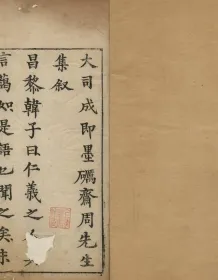 大司成即墨礪齋周先生
集叙
昌黎韓子曰仁義之人其
言藹如是語也聞之矣未